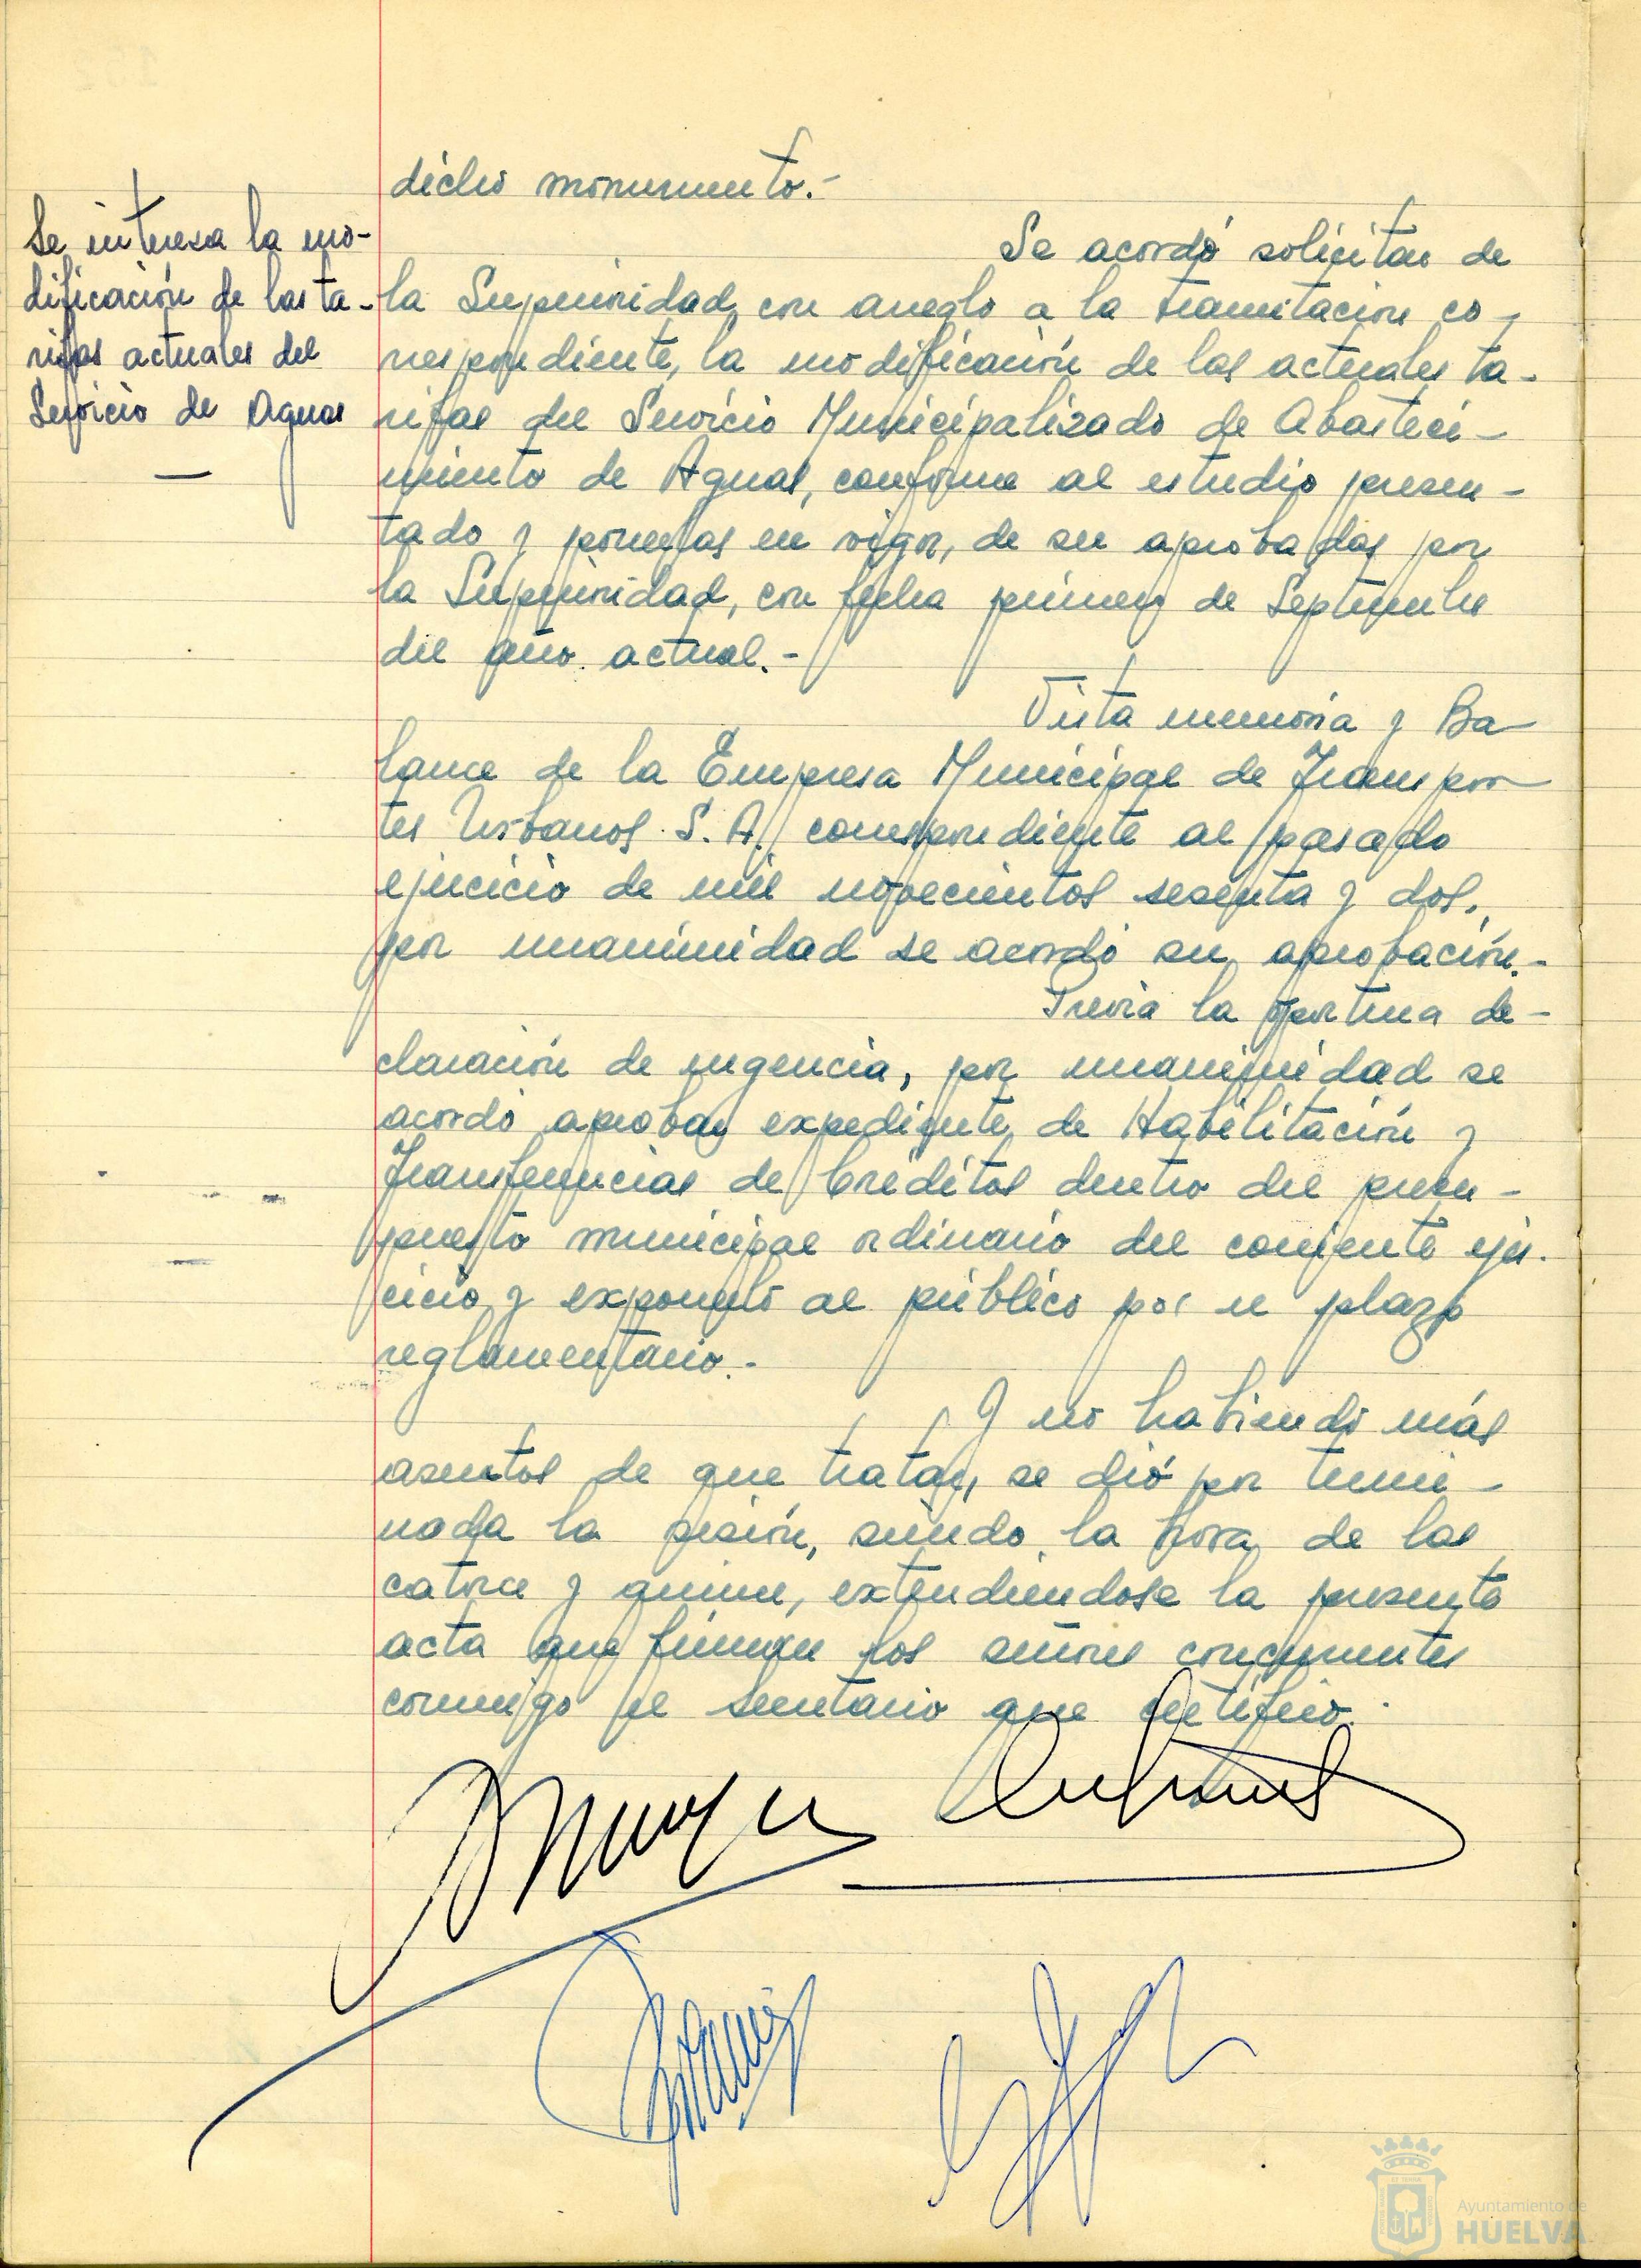 dicho monumento.-
Se interesa la mo-
dificación de las ta-
rifas actuales del
Servicio de Aguas
Se acordó solicitar de
la Superioridad, con arreglo a la tramitación co-
rrespondiente, la modificación de las actuales ta-
rifas del Servicio Municipalizado de Abasteci-
miento de Aguas, conforme al estudio presen-
tado y ponerlas en vigor, de ser aprobadas por
la Superioridad, con fecha primero de Septiembre
del año actual.-
Vista memoria y Ba-
lance de la Empresa Municipal de Transpor-
tes Urbanos S.A. correspondiente al pasado
ejercicio de mil novecientos sesenta y dos,
por unanimidad se acordó su aprobación.-
Previa la oportuna de-
claración de urgencia, por unanimidad se
acordó aprobar expediente de Habilitación y
Transferencias de Créditos dentro del presu-
puesto municipal ordinario del corriente ejer-
cicio y exponerlo al público por el plazo
reglamentario.-
Y no habiendo más
asuntos de que tratar, se dió por termi-
nada la sesión, siendo la hora de las
catorce y quince, extendiendose la presente
acta que firman los señores concurrentes
conmigo el secretario que certifico.
Ayuntamiento de
HUELVA